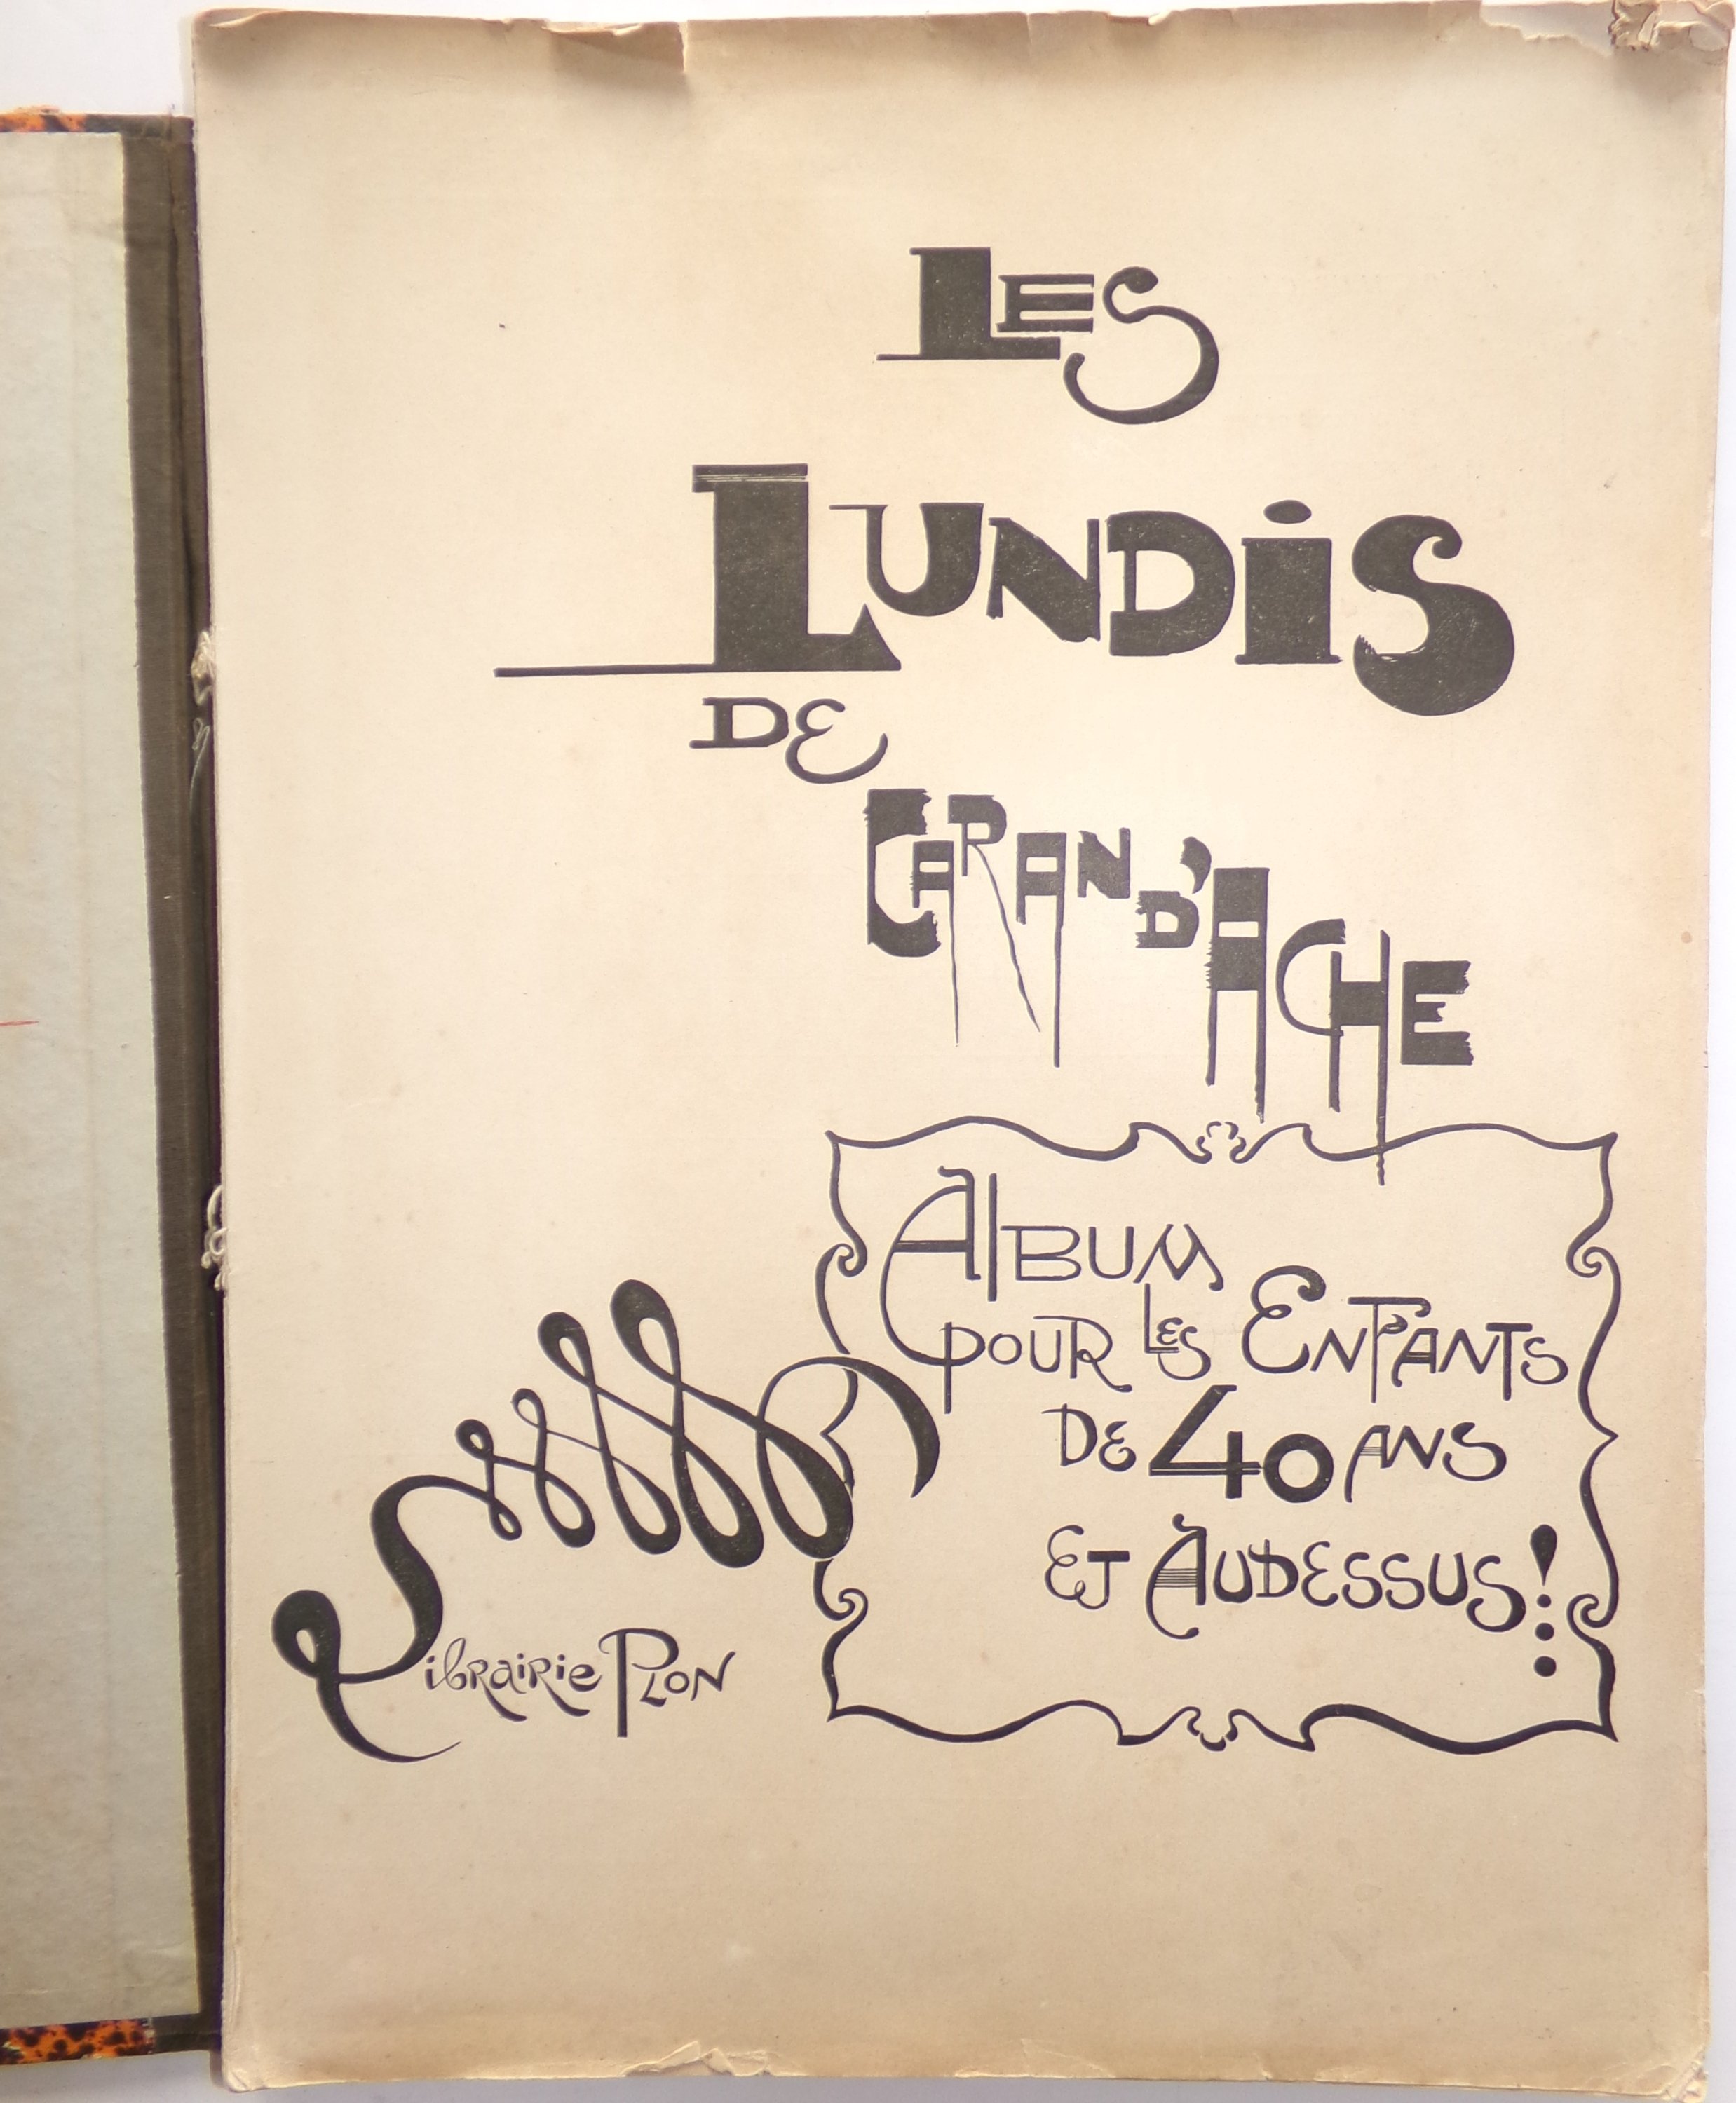 LES
LUNDiS
DE
CARAN D'ACHE
AlBUM
POUR LES ENFANTS
DE 40 ANS
ET AUDESSUS!
Librairie PLON